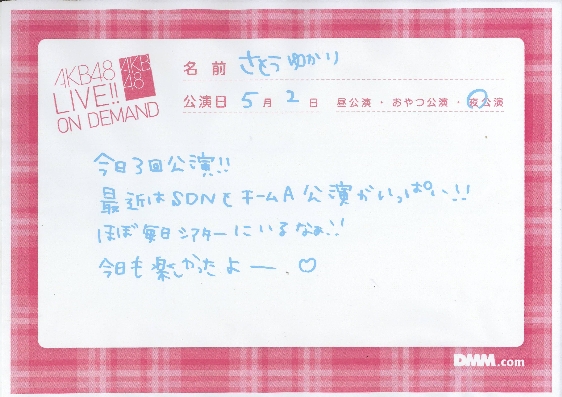 AKB48
LIVE!!
ON DEMAND
AKB
48
名前 さとうゆかり
公演日 5月2日 昼公演・おやつ公演・夜公演
今日3回公演!!
最近はSDNもチームA公演がいっぱい!!
ほぼ毎日シアターにいるなぁ!!
今日も楽しかったよー♡
DMM.com